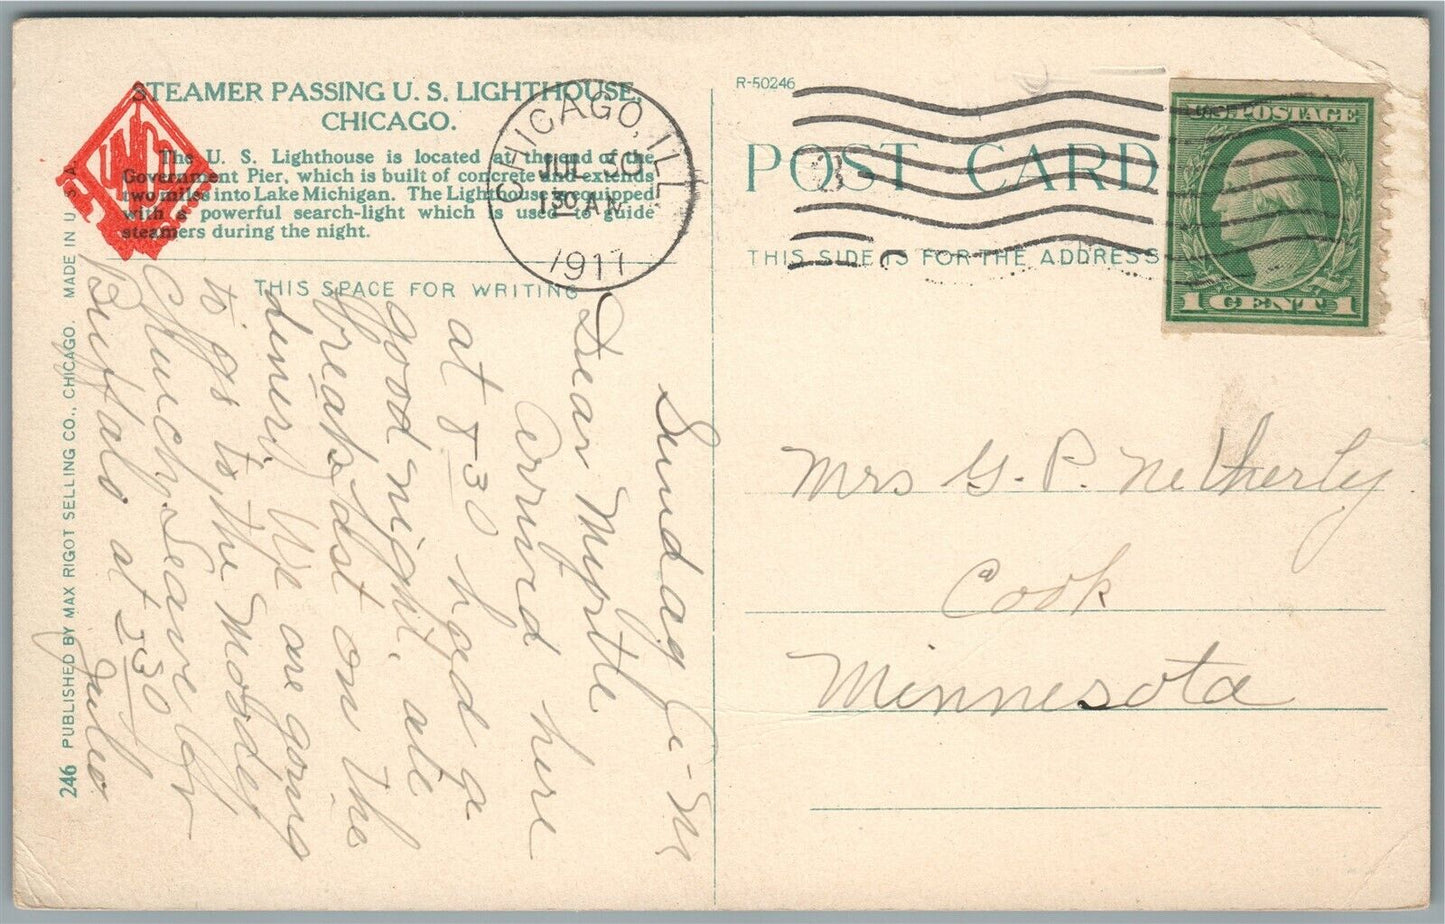 STEAMER PASSING U. S. LIGHTHOUSE,
CHICAGO.
The U. S. Lighthouse is located at the end of the
Government Pier, which is built of concrete and extends
two miles into Lake Michigan. The Lighthouse is equipped
with a powerful search-light which is used to guide
steamers during the night.
THIS SPACE FOR WRITING
246 PUBLISHED BY MAX RIGOT SELLING CO., CHICAGO. MADE IN U. S. A.
CHICAGO, ILL.
JUL 30
130 AM
1911
R-50246
POST CARD
THIS SIDE IS FOR THE ADDRESS
U.S. POSTAGE
1 CENT 1
Sunday
Dear Myrtle
Arrived here
at 8 30 had a
good night. ate
breakfast on the
diner. We are going
to go to the
Church Leave for
Buffalo at 5 30
Mrs G. P. Netherly
Cook
Minnesota